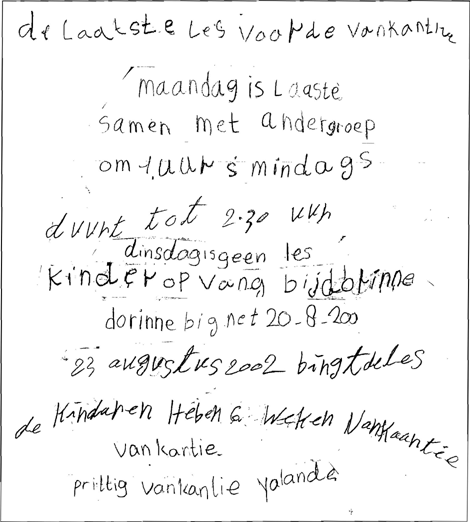 de Laatste Les voor de vankantie
maandag is Laaste
samen met andergroep
om 1.uur s mindags
duurt tot 2.30 uur
dinsdagisgeen les
kinder opvang bijdorinne
dorinne bignet 20-8-200
23 augustus 2002 bingtdeles
de Kindaren Heben 6 Weken Vankaantie
vankartie.
prittig vankantie yalanda